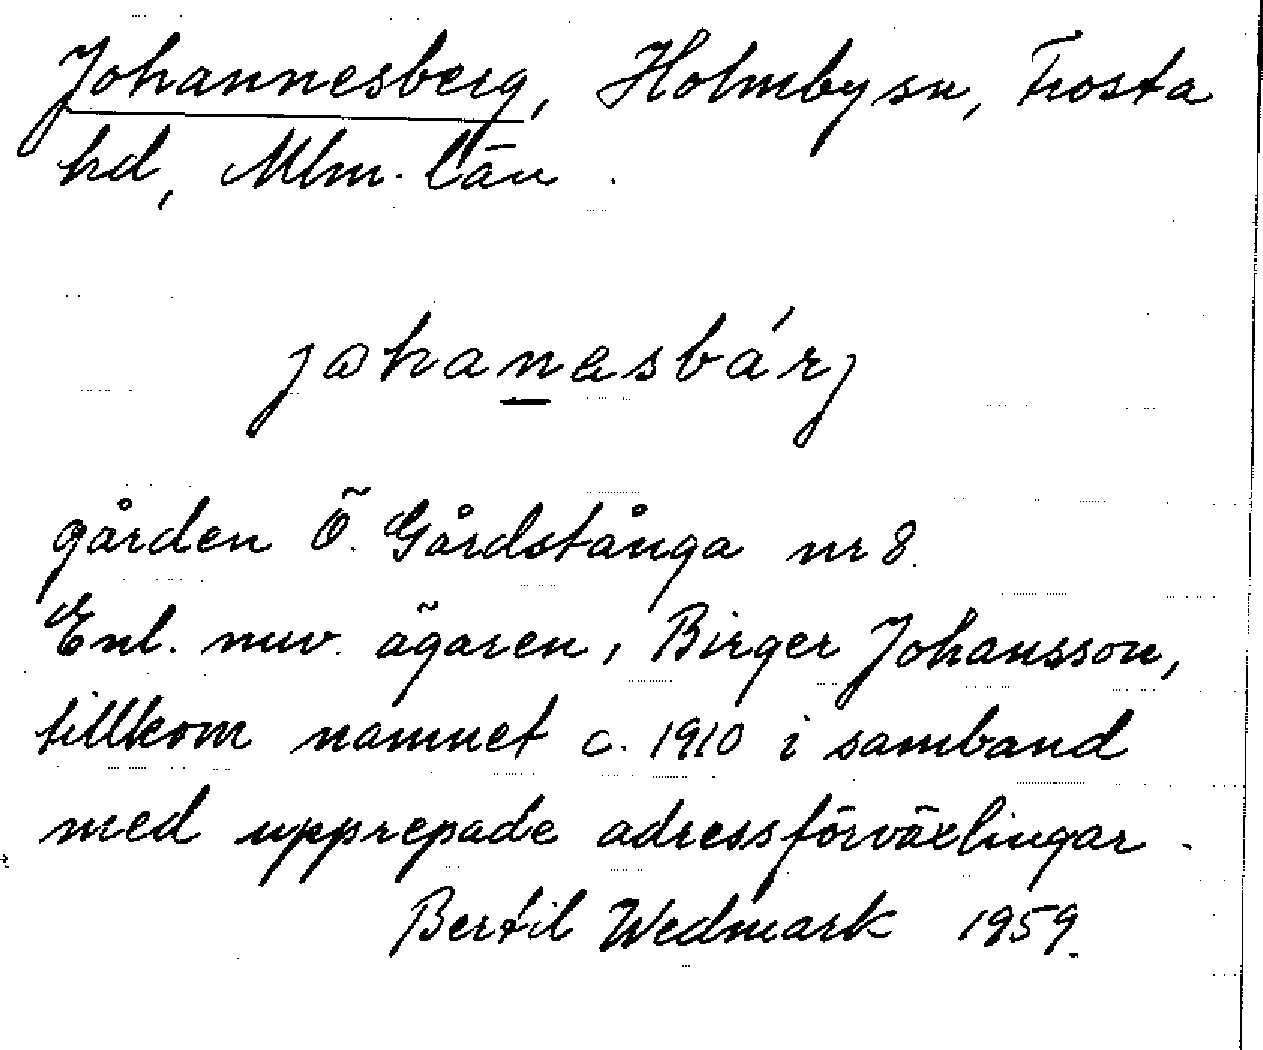 Johannesberg, Holmby sn, Frosta
hd, Mlm. län.
johanasbárj
gården Ö. Gårdstånga nr 8.
Enl. nuv. ägaren, Birger Johansson,
tillkom namnet c. 1910 i samband
med upprepade adressförväxlingar.
Bertil Wedmark 1959.